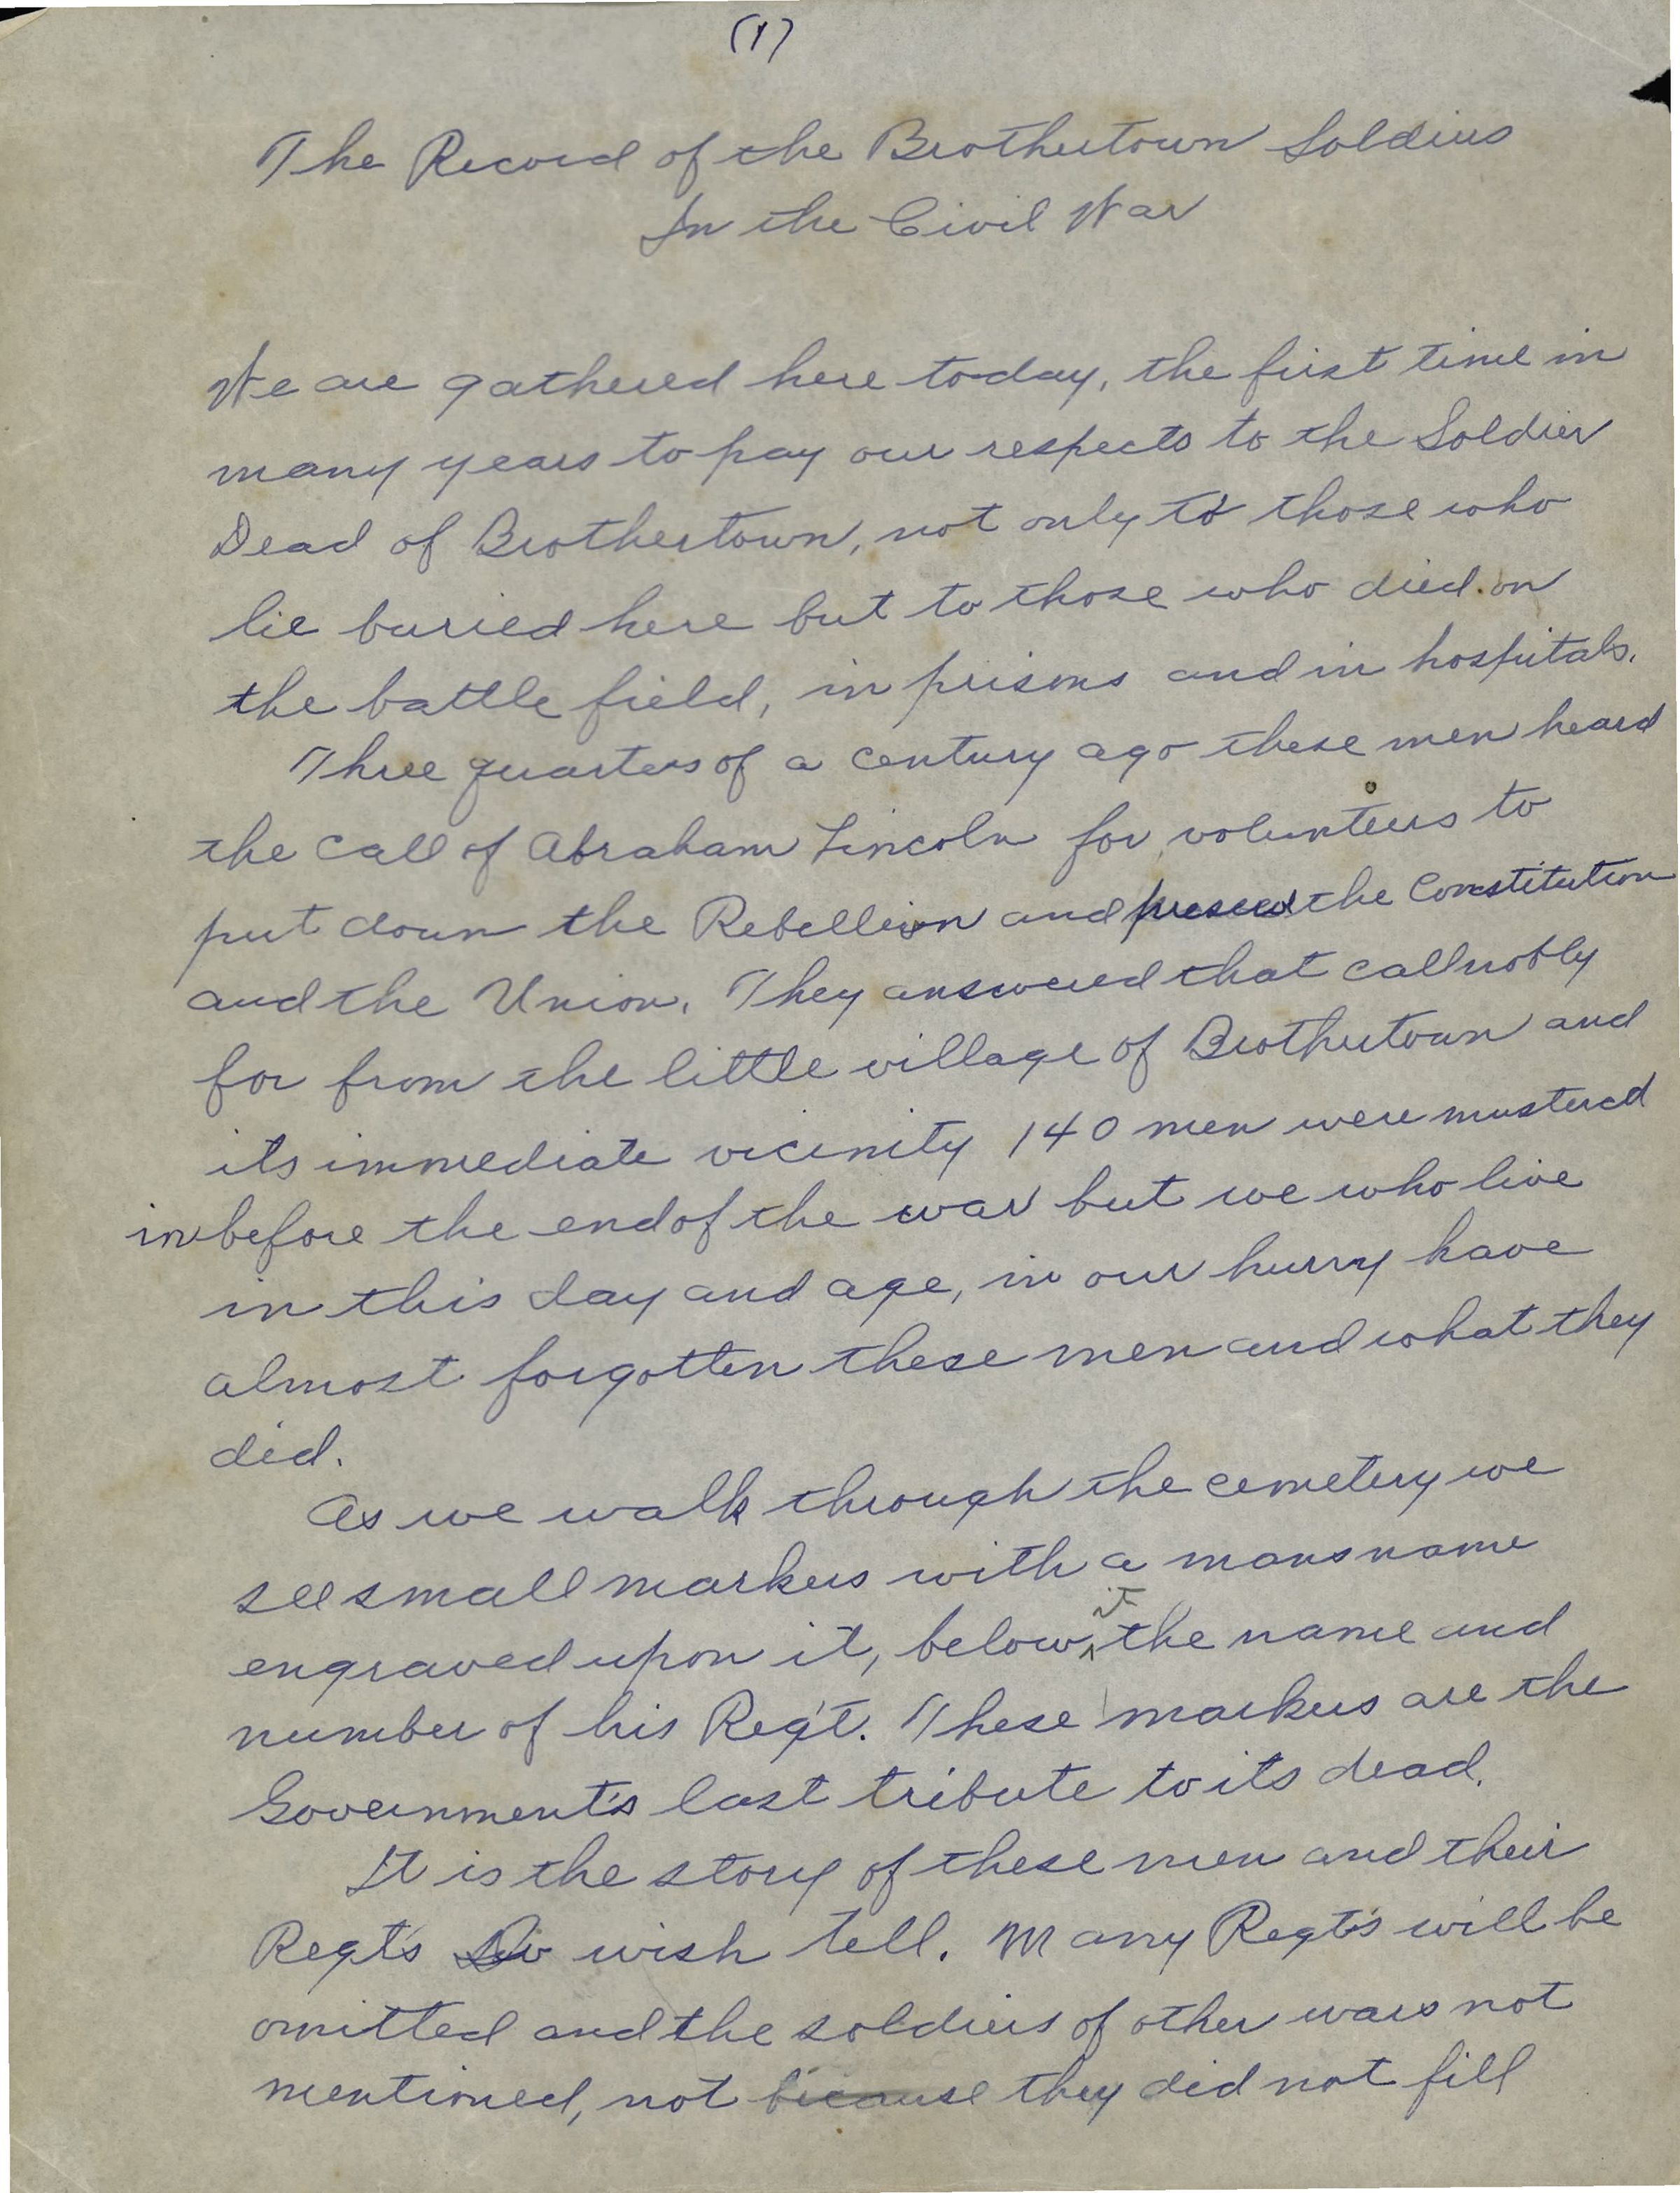 (1)
The Record of the Brothertown Soldiers
In the Civil War
We are gathered here today, the first time in
many years to pay our respects to the Soldier
Dead of Brothertown, not only to those who
lie buried here but to those who died on
the battle field, in prisons and in hospitals.
Three quarters of a century ago these men heard
the call of Abraham Lincoln for volunteers to
put down the Rebellion and the Constitution
and the Union. They answered that call nobly
for from the little village of Brothertown and
its immediate vicinity 140 men were mustered
in before the end of the war but we who live
in this day and age, in our hurry have
almost forgotten these men and what they
did.
As we walk through the cemetery we
see small markers with a mans name
engraved upon it, below it the name and
number of his Reg't. These markers are the
Government's last tribute to its dead.
It is the story of these men and their
Regt's wish tell. Many Regt's will be
omitted and the soldiers of other wars not
mentioned, not because they did not fill